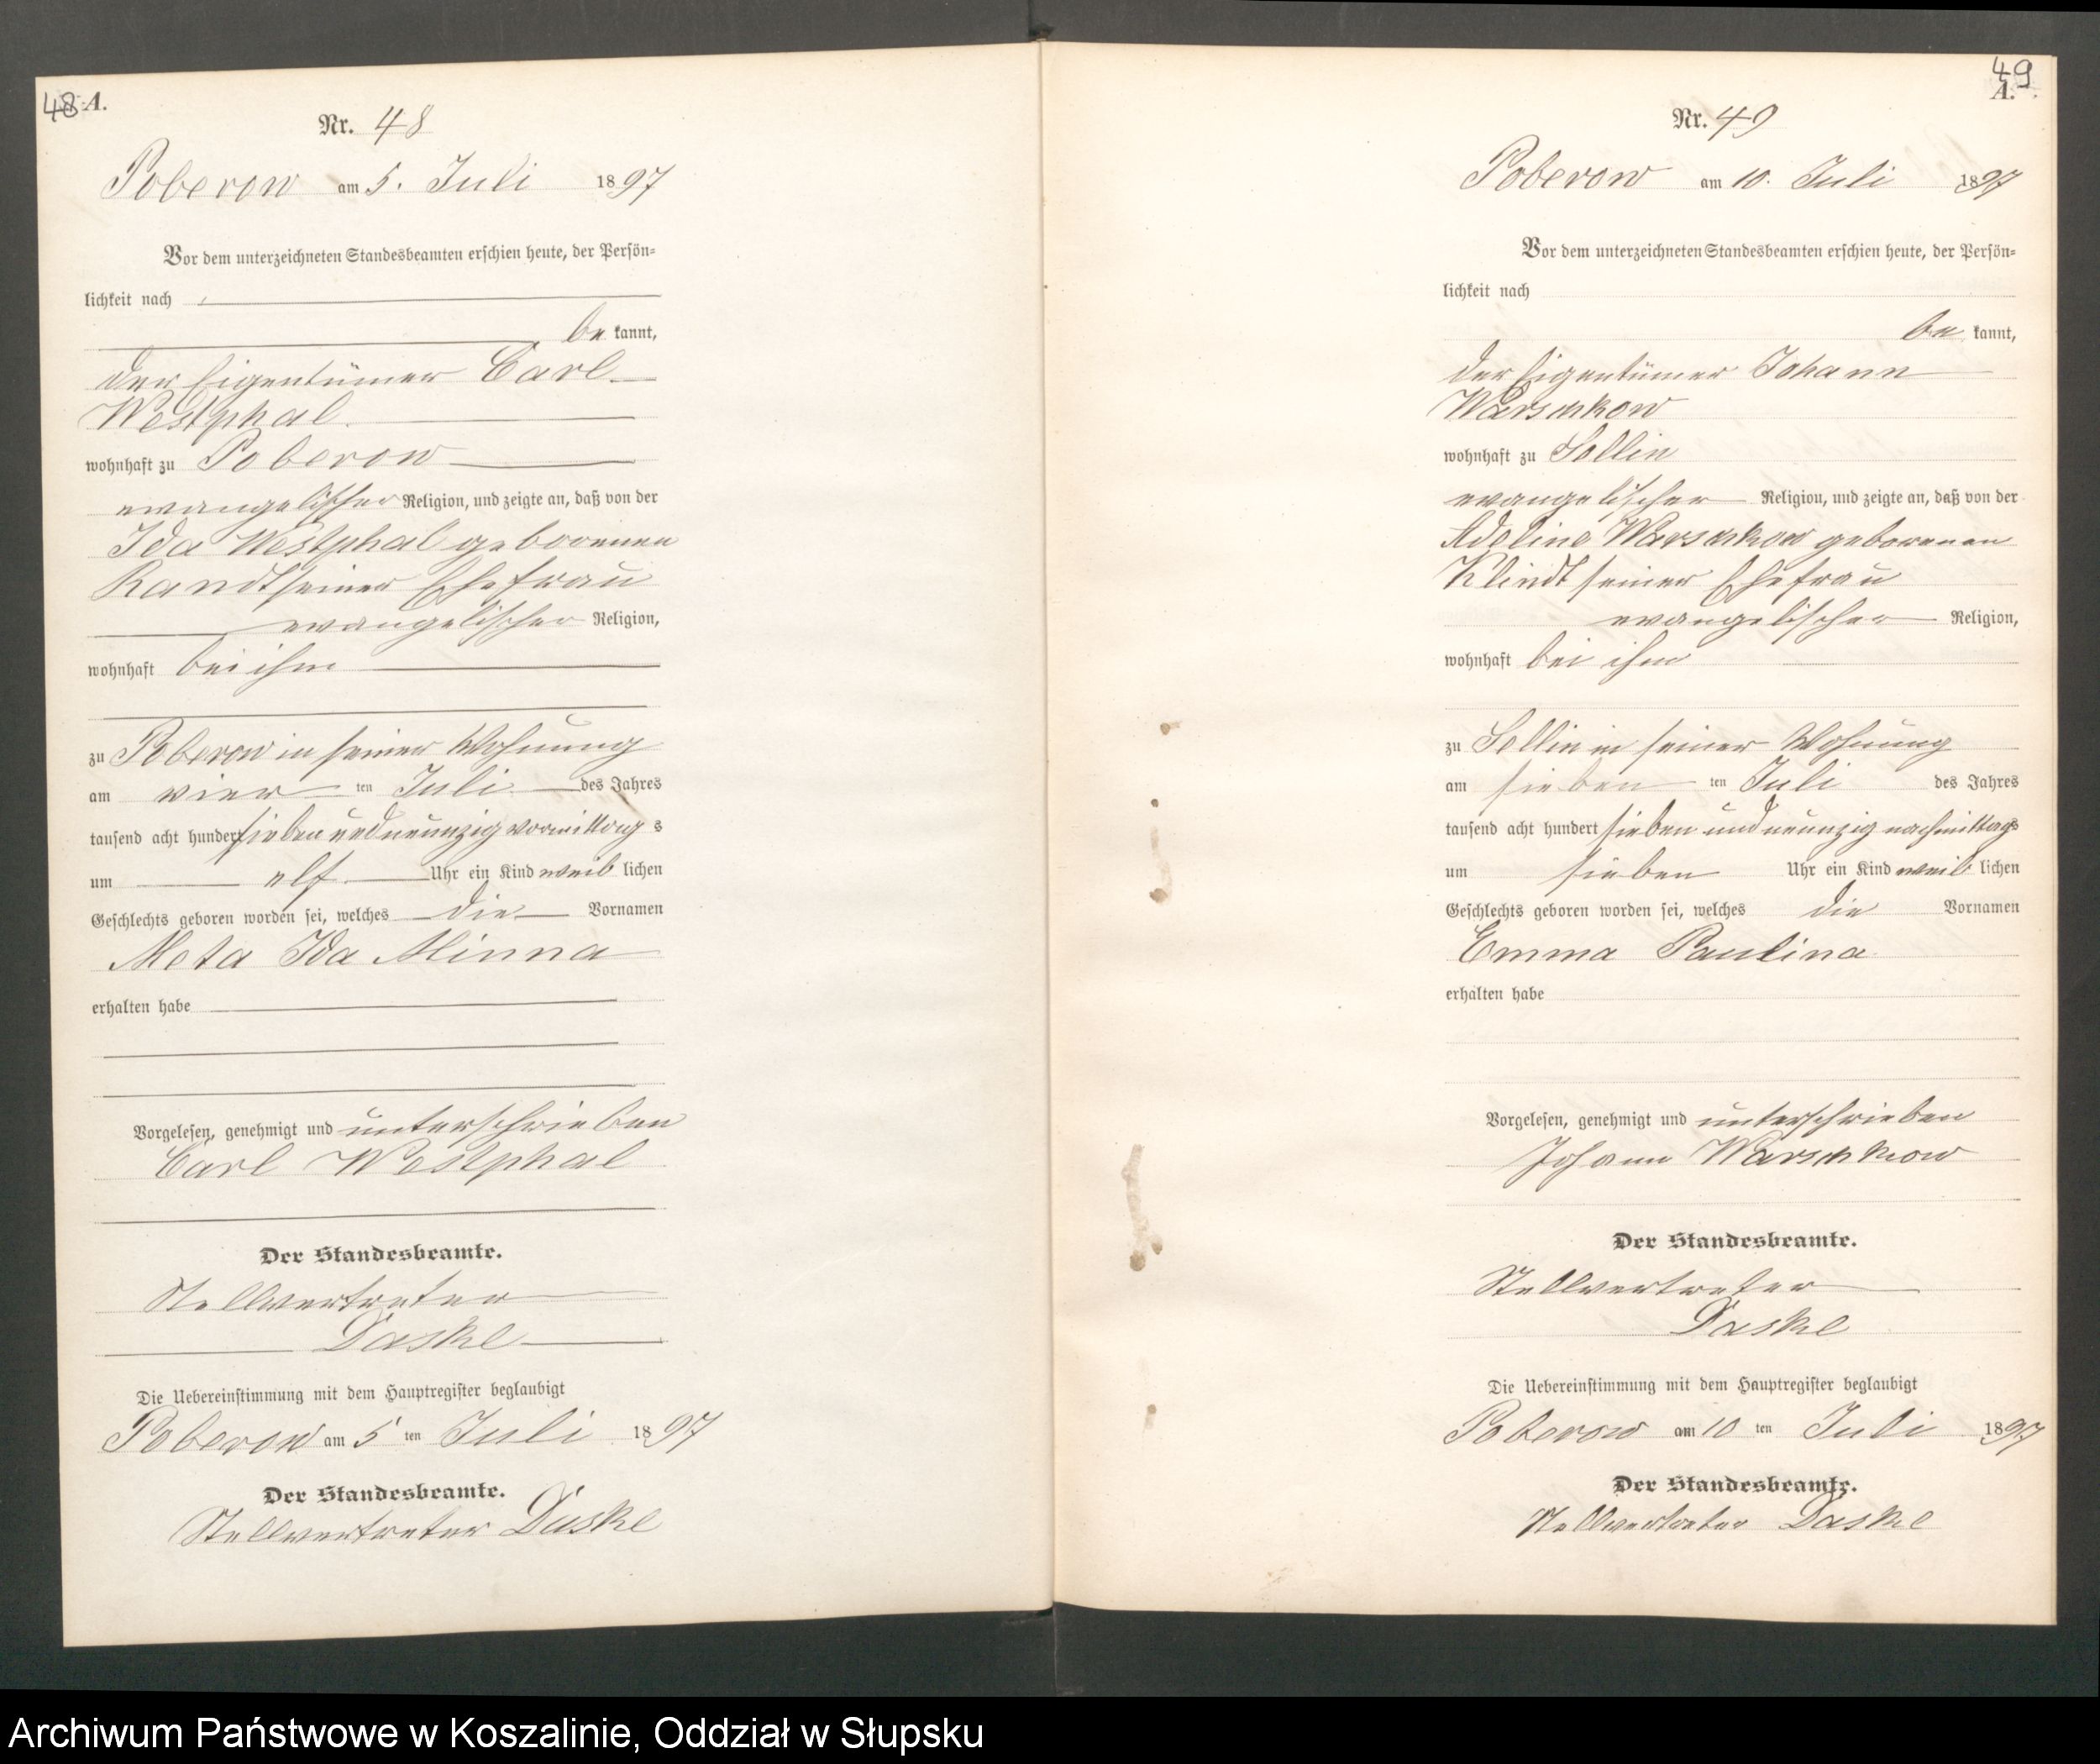 48 A.
Nr. 48
Poberow am 5. Juli 1897
Vor dem unterzeichneten Standesbeamten erschien heute, der Persön=
lichkeit nach
be kannt,
der Eigentümer Carl
Westphal.
wohnhaft zu Poberow
evangelischer Religion, und zeigte an, daß von der
Ida Westphal geborenen
Randt seiner Ehefrau
evangelischer Religion,
wohnhaft bei ihm
zu Poberow in seiner Wohnung
am vier ten Juli des Jahres
tausend acht hundert sieben und neunzig vormittag s
um elf Uhr ein Kind weib lichen
Geschlechts geboren worden sei, welches die Vornamen
Meta Ida Minna
erhalten habe
Vorgelesen, genehmigt und unterschrieben
Carl Westphal
Der Standesbeamte.
Stellvertreter
Daske
Die Uebereinstimmung mit dem Hauptregister beglaubigt
Poberow am 5 ten Juli 1897
Der Standesbeamte.
Stellvertreter Daske
49
A.
Nr. 49
Poberow am 10. Juli 1897
Vor dem unterzeichneten Standesbeamten erschien heute, der Persön=
lichkeit nach
be kannt,
der Eigentümer Johann
Warschkow
wohnhaft zu Sellin
evangelischer Religion, und zeigte an, daß von der
Adeline Warschkow geborenen
Klindt seiner Ehefrau
evangelischer Religion,
wohnhaft bei ihm
zu Sellin in seiner Wohnung
am sieben ten Juli des Jahres
tausend acht hundert sieben und neunzig nachmittags
um sieben Uhr ein Kind weib lichen
Geschlechts geboren worden sei, welches die Vornamen
Emma Paulina
erhalten habe
Vorgelesen, genehmigt und unterschrieben
Johann Warschkow
Der Standesbeamte.
Stellvertreter
Daske
Die Uebereinstimmung mit dem Hauptregister beglaubigt
Poberow am 10 ten Juli 1897
Der Standesbeamte.
Stellvertreter Daske
Archiwum Państwowe w Koszalinie, Oddział w Słupsku